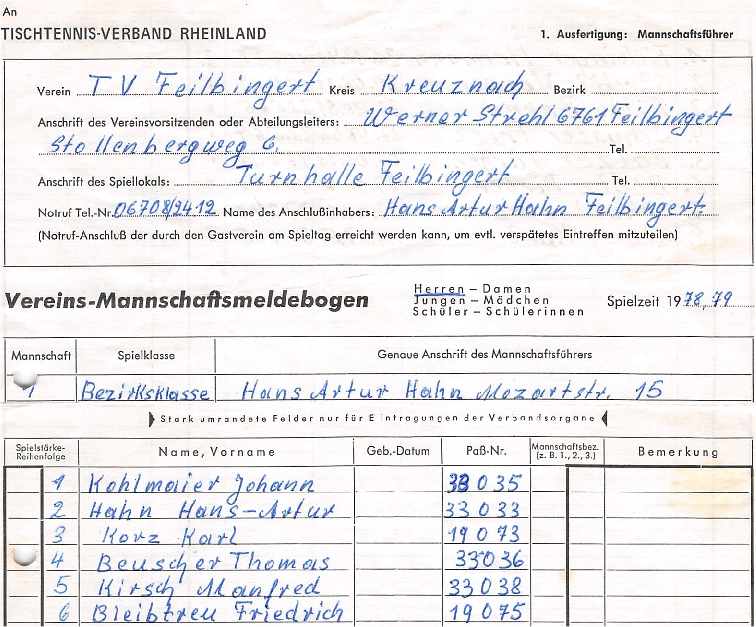 An
TISCHTENNIS-VERBAND RHEINLAND 1. Ausfertigung: Mannschaftsführer
Verein TV Feilbingert Kreis Kreuznach Bezirk
Anschrift des Vereinsvorsitzenden oder Abteilungsleiters: Werner Strehl 6761 Feilbingert
Stollenbergweg 6. Tel.
Anschrift des Spiellokals: Turnhalle Feilbingert Tel.
Notruf Tel.-Nr. 06708/2412 Name des Anschlußinhabers: Hans Artur Hahn Feilbingert.
(Notruf-Anschluß der durch den Gastverein am Spieltag erreicht werden kann, um evtl. verspätetes Eintreffen mitzuteilen)
Herren – Damen
Vereins-Mannschaftsmeldebogen Jungen – Mädchen Spielzeit 1978,79
Schüler – Schülerinnen
Mannschaft Spielklasse Genaue Anschrift des Mannschaftsführers
1 Bezirksklasse Hans Artur Hahn Mozartstr. 15
Stark umrandete Felder nur für Eintragungen der Verbandsorgane
Spielstärke-Reihenfolge Name, Vorname Geb.-Datum Paß-Nr. Mannschaftsbez. (z. B. 1., 2., 3.) Bemerkung
1 Kohlmaier Johann 33035
2 Hahn Hans-Artur 33033
3 Korz Karl 19073
4 Beuscher Thomas 33036
5 Kirsch Manfred 33038
6 Bleibtreu Friedrich 19075